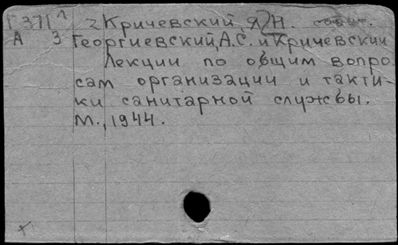 Г 371 2 Кричевский Я.Н. соавт.
А 3 Георгиевский, А.С. и Кричевский
Лекции по общим вопро
сам организации и такти
ки санитарной службы.
М., 1944.